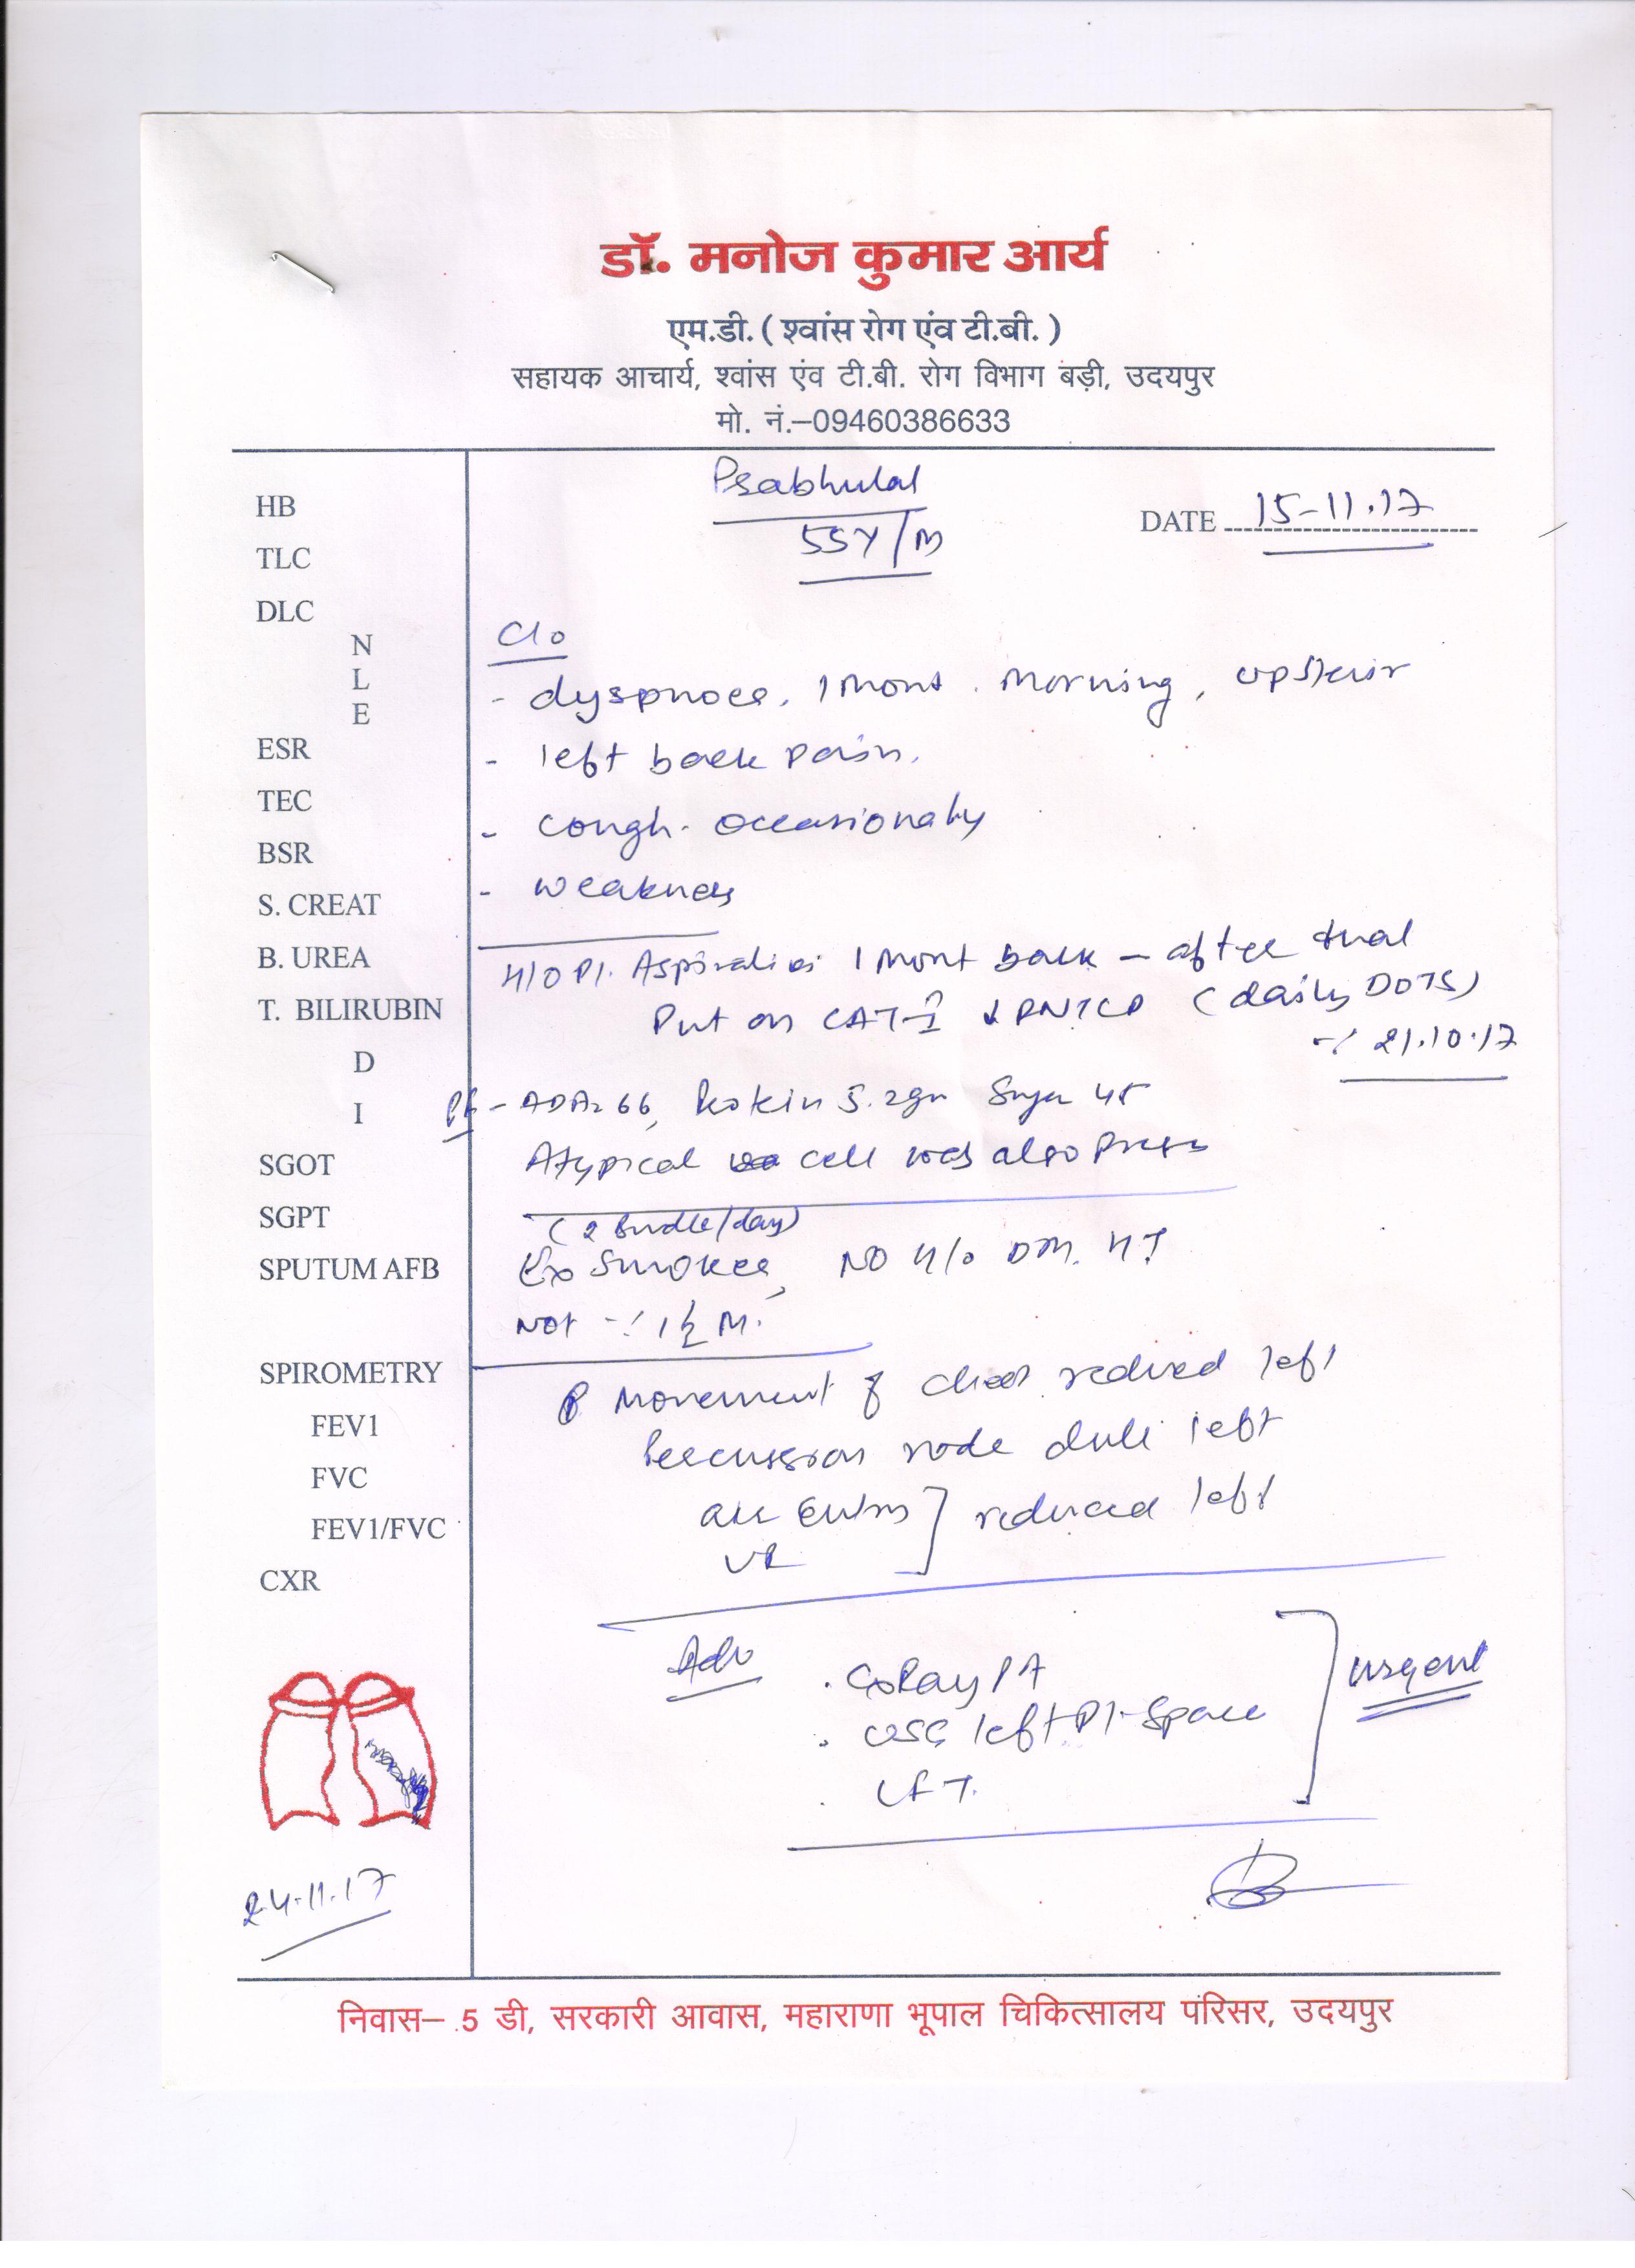 डॉ. मनोज कुमार आर्य
एम.डी. ( श्वांस रोग एंव टी.बी. )
सहायक आचार्य, श्वांस एंव टी.बी. रोग विभाग बड़ी, उदयपुर
मो. नं.–09460386633
Prabhulal
55Y/M
DATE 15-11.17
HB
TLC
DLC
N
L
E
ESR
TEC
BSR
S. CREAT
B. UREA
T. BILIRUBIN
D
I
SGOT
SGPT
SPUTUM AFB
SPIROMETRY
FEV1
FVC
FEV1/FVC
CXR
24.11.17
C/o
- dyspnoea, 1 mont. morning,
- left back pain.
- cough. occasionaly
- weakness
H/O Pl. Aspiration 1 mont back - after that
Put on CAT-I RNTCP (daily DOTS)
21.10.17
Pf - ADA= 66, Protein 5.2gm Sugar 45
Atypical cell was also
(2 Bundle/day)
Ex Smoker, NO H/o DM. HT
Not 1½ M.
Movement of chest reduced left
Percussion node dull left
air entry ] reduced left
VR
Adv
. X Ray PA
. USG left Pl. Space
. LFT.
] urgent
निवास– 5 डी, सरकारी आवास, महाराणा भूपाल चिकित्सालय परिसर, उदयपुर